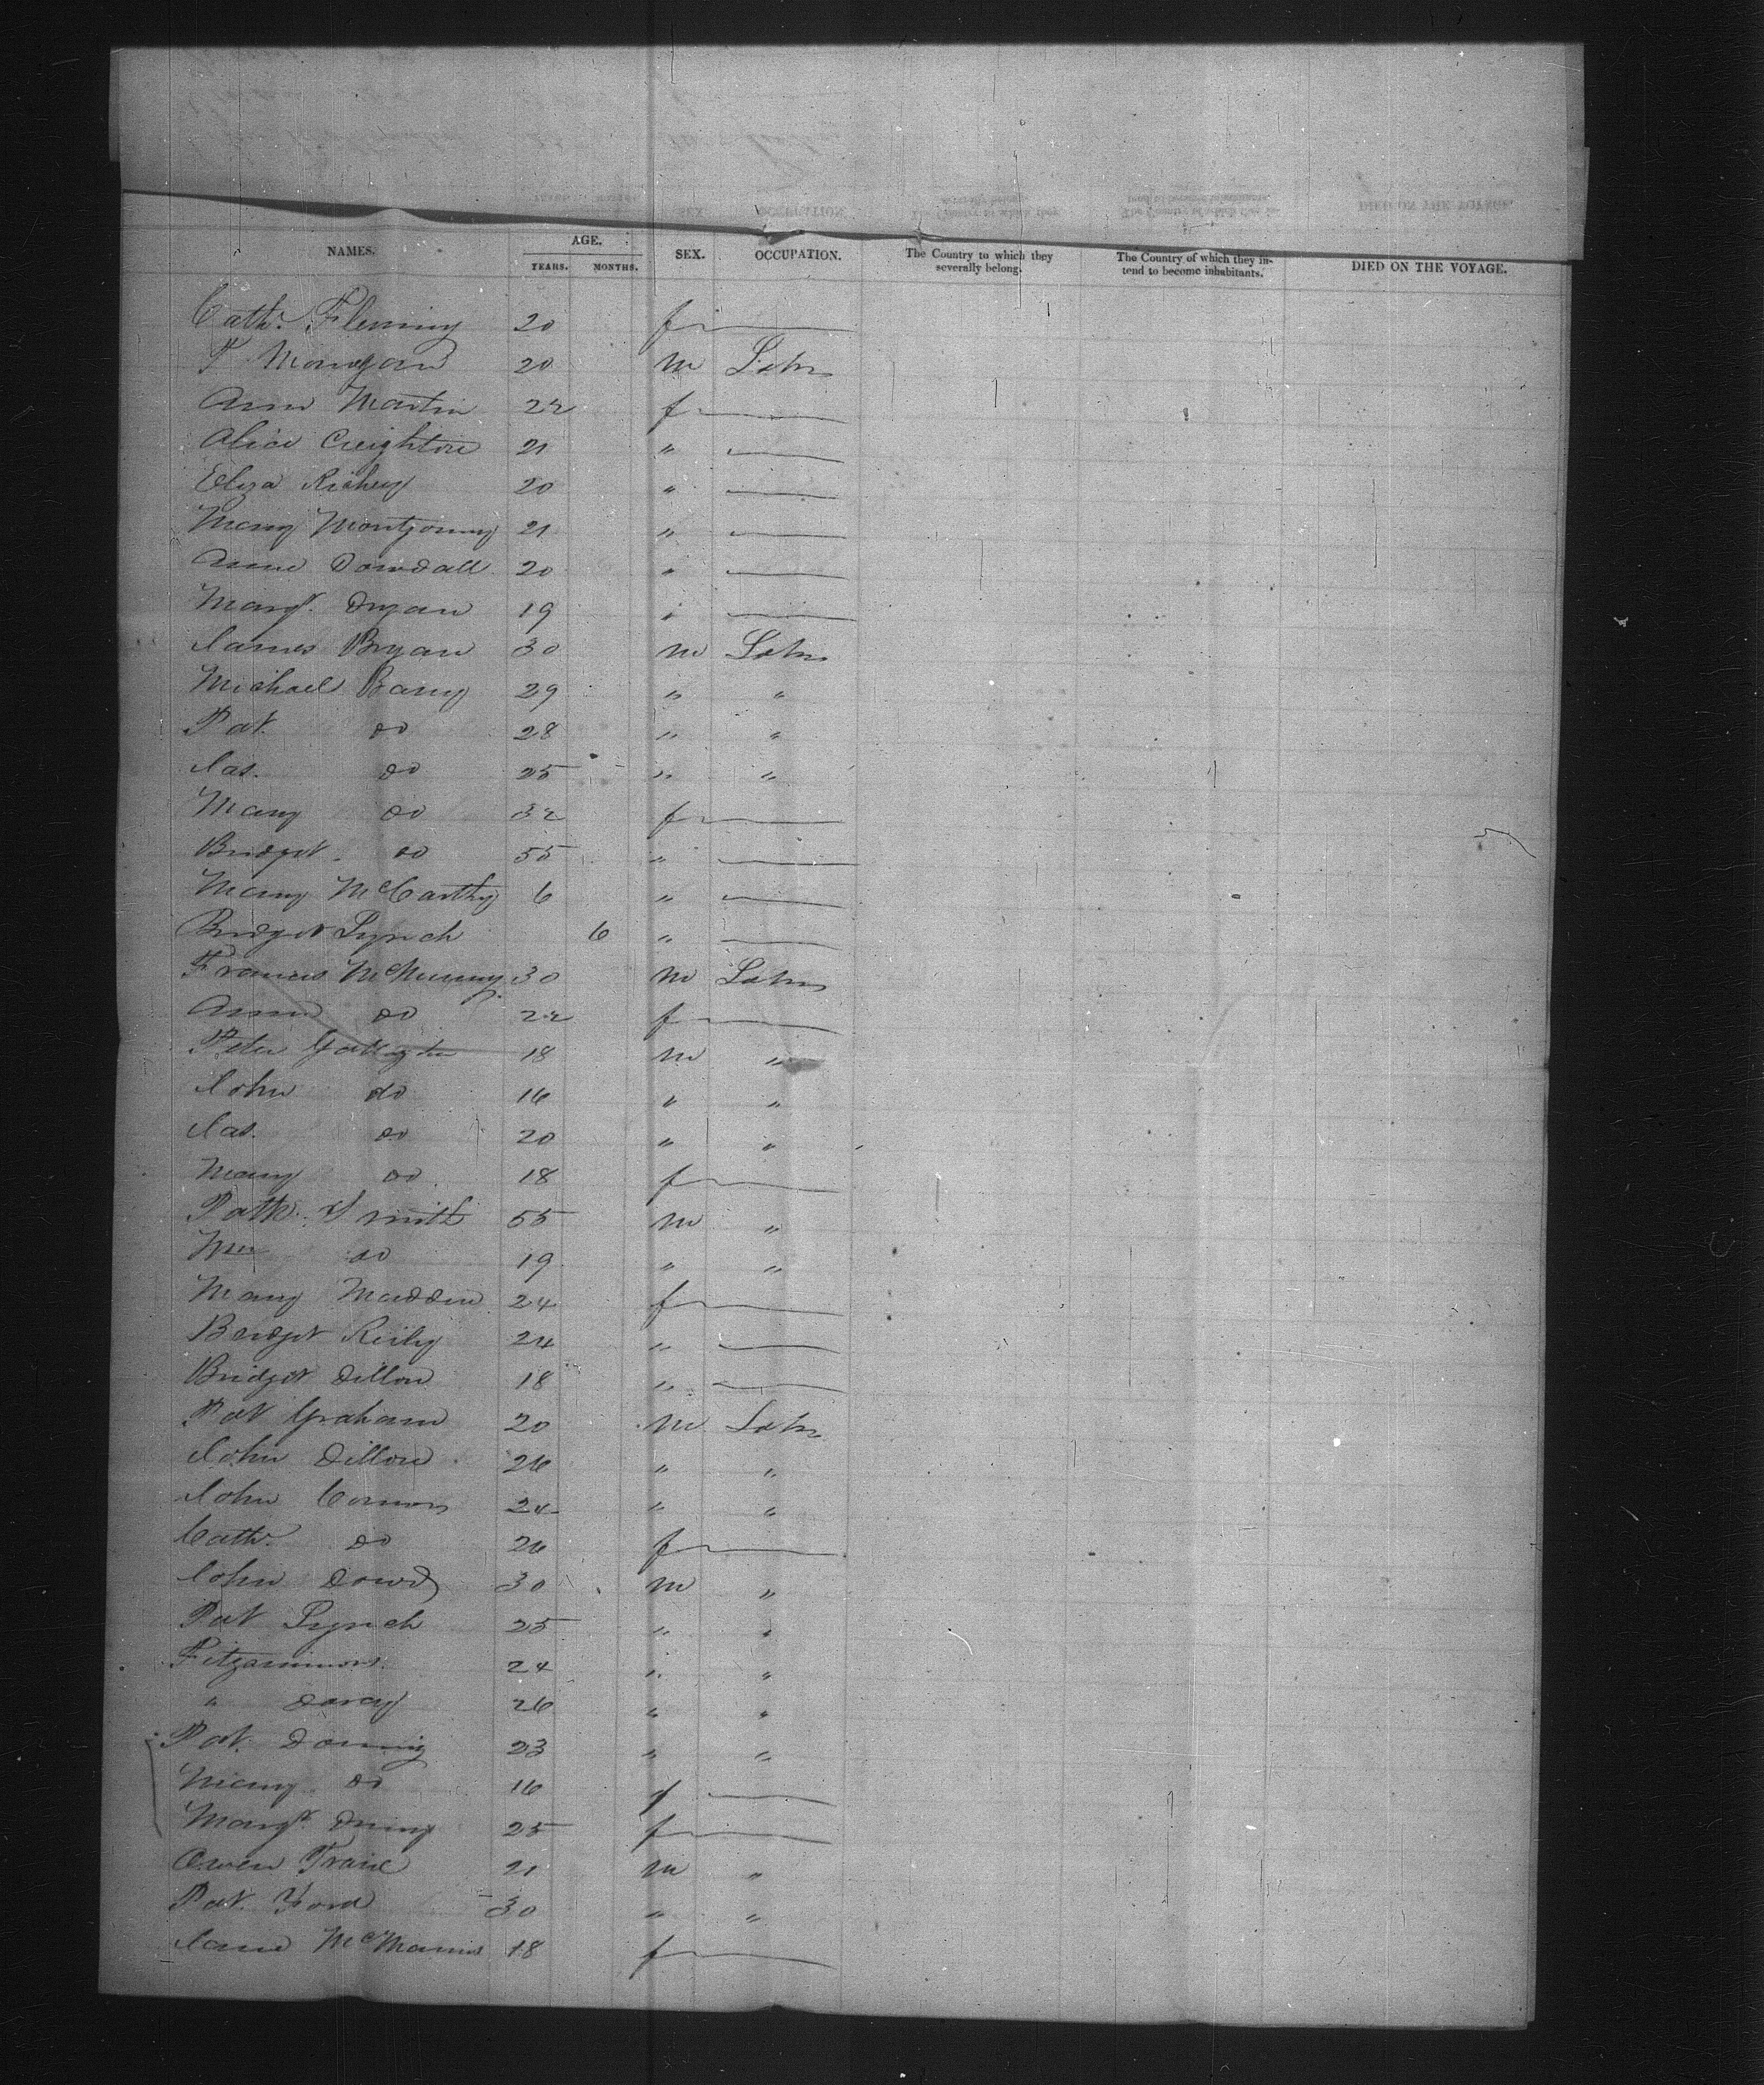 NAMES. AGE. YEARS. MONTHS. SEX. OCCUPATION. The Country to which they severally belong. The Country of which they intend to become inhabitants. DIED ON THE VOYAGE.
Cath. Fleming 20 f
T Mangan 20 m Labr
Ann Martin 22 f
Alice Creighton 21 "
Eliza Richey 20 "
Mary Montgomery 21 "
Anne Dowdall 20 "
Margt. Dugan 19 "
James Bryan 30 m Labr
Michael Barry 29 " "
Pat. do 28 " "
Jas. do 25 " "
Mary do 32 f
Bridget do 55 "
Mary McCarthy 6 "
Bridget Lynch 6 "
Francis McMurray 30 m Labr
Ann do 22 f
Peter Gallagher 18 m "
John do 16 " "
Jas. do 20 " "
Mary do 18 f
Patk. Smith 55 m "
Wm do 19 " "
Mary Madden 24 f
Bridget Reily 24 "
Bridget Dillon 18 "
Pat Graham 20 m Labr
John Dillon 26 " "
John Connors 24 " "
Cath. do 26 f
John Dowd 30 m "
Pat Lynch 25 " "
Fitzsimmons 24 " "
" Darcy 26 " "
Pat. 23 " "
Mary do 16 f
Margt. 25 f
Owen 21 m "
Pat. Ford 30 " "
Jane McManus 18 f